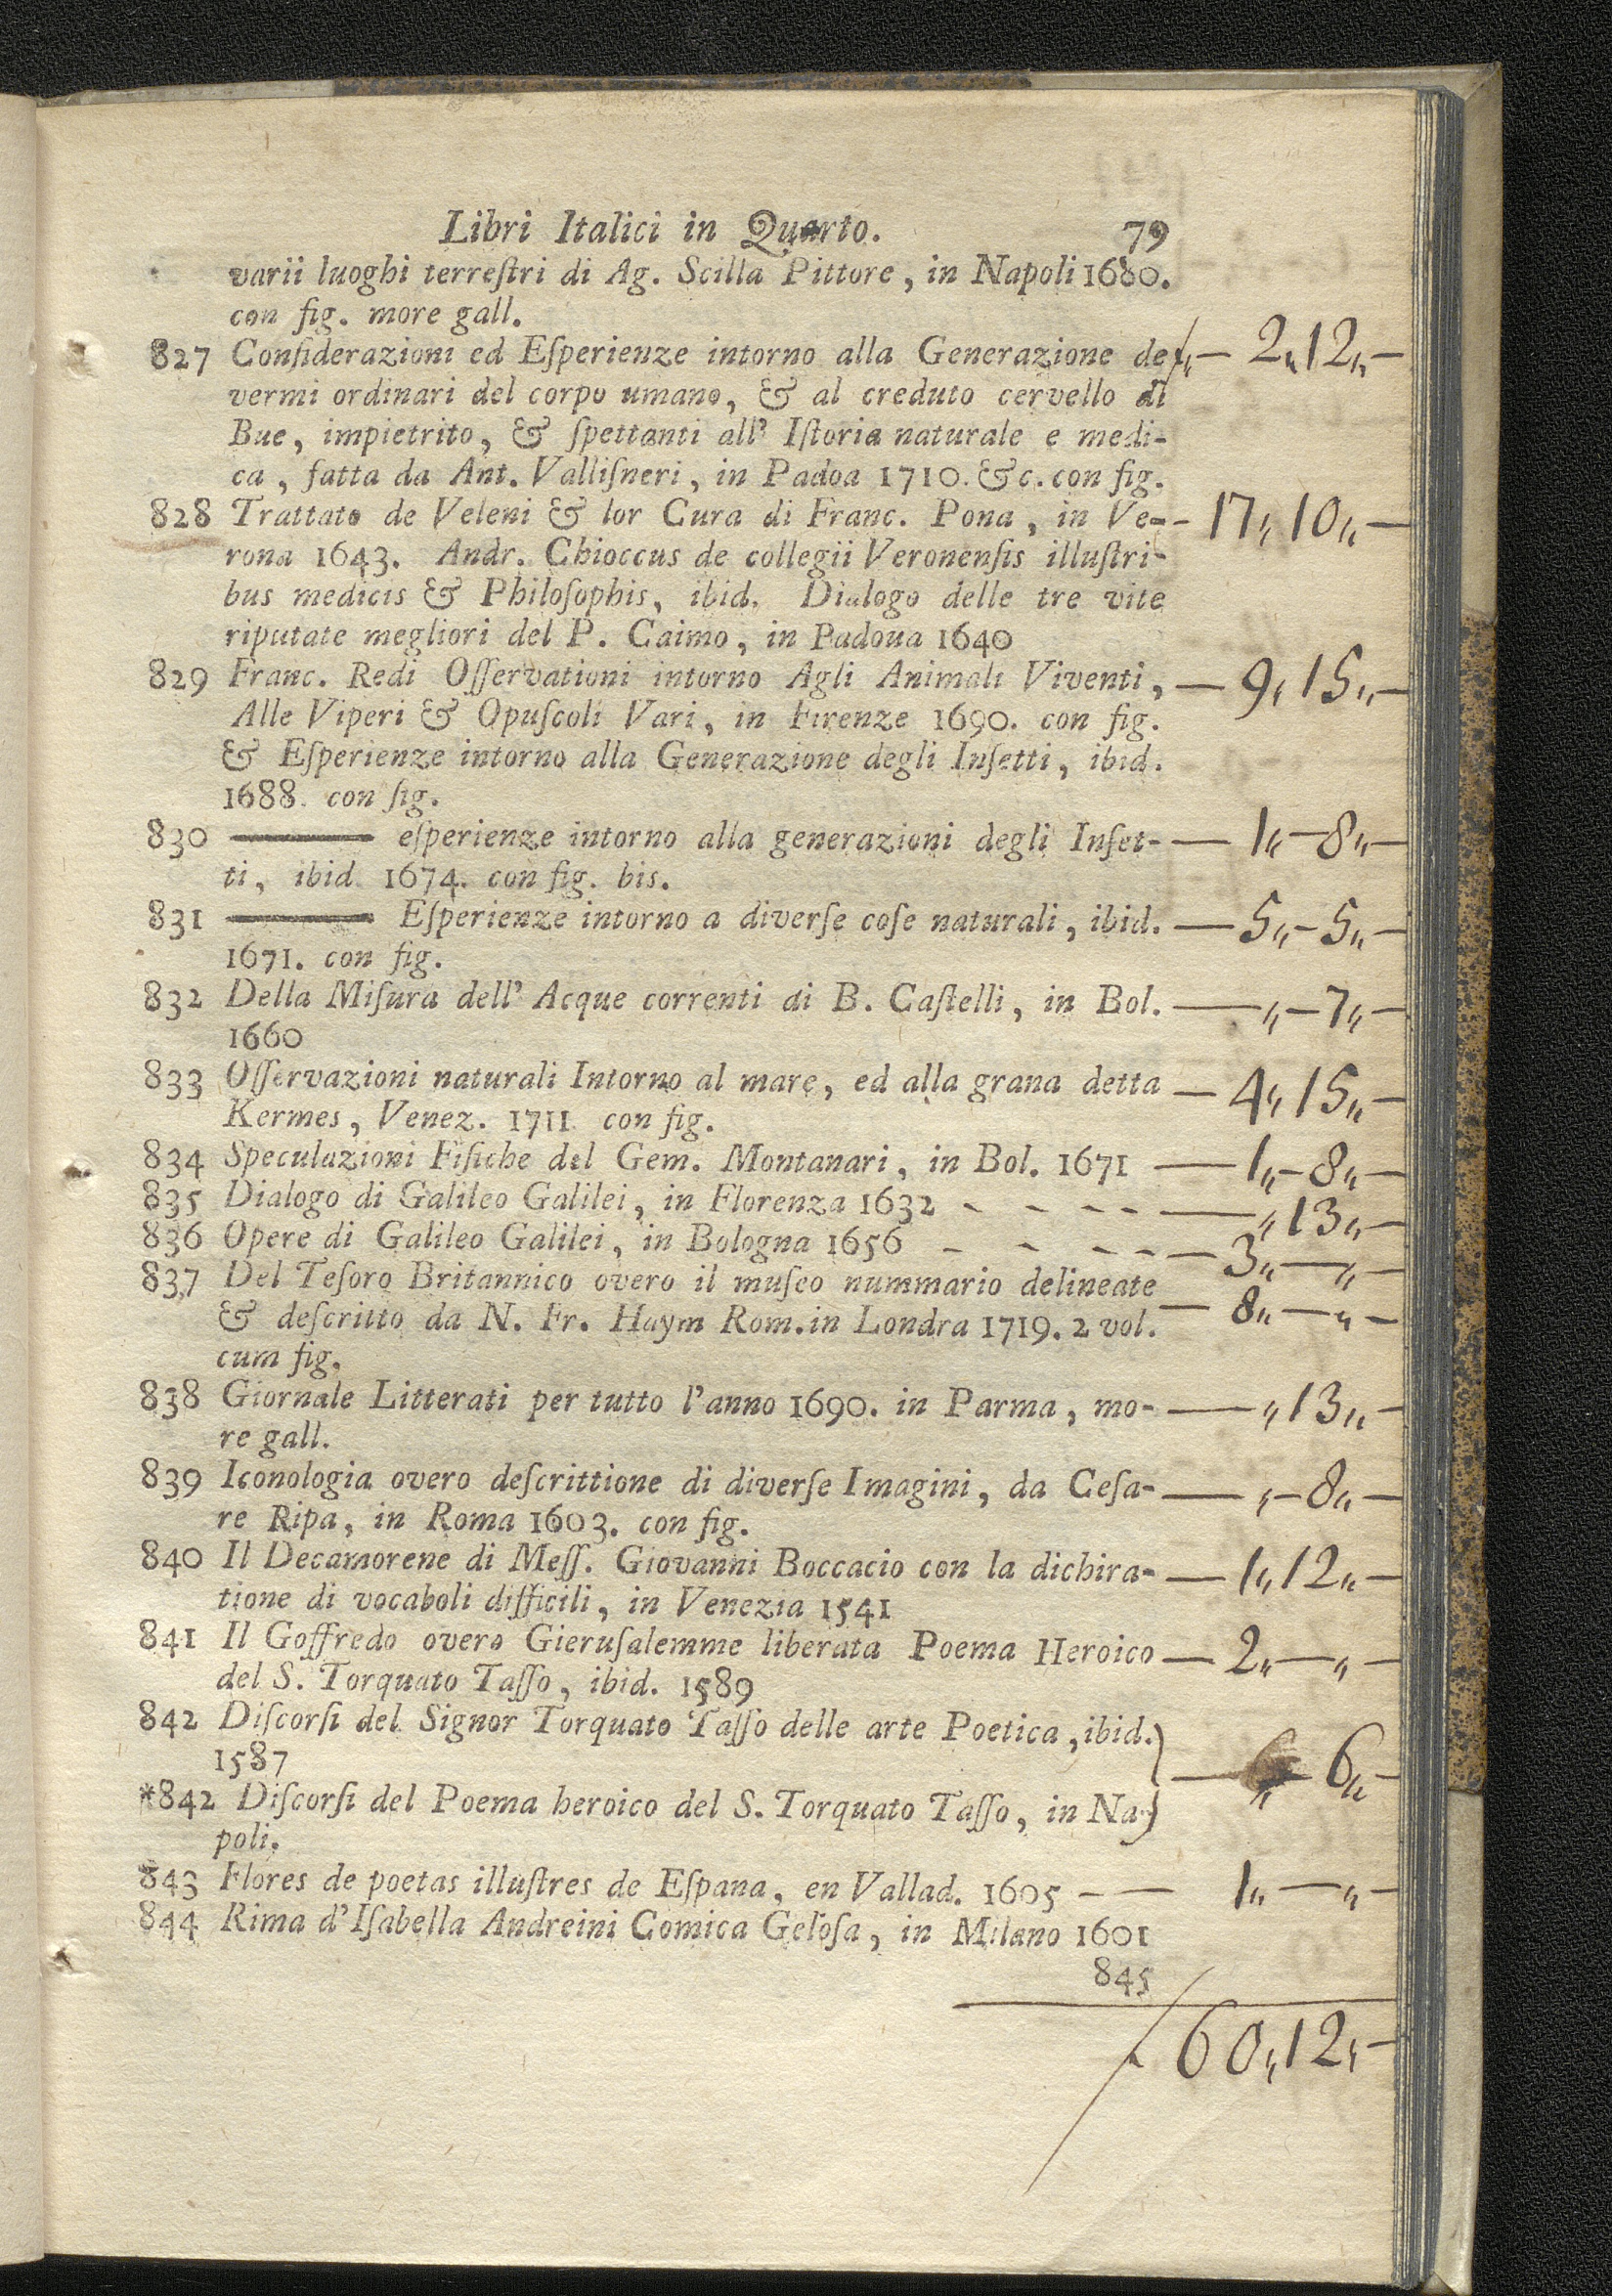 Libri Italici in Quarto. 79
varii luoghi terreſtri di Ag. Scilla Pittore, in Napoli 1680.
con fig. more gall.
827 Conſiderazioni ed Eſperienze intorno alla Generazione de „— 2„12„—
vermi ordinari del corpo umano, & al creduto cervello di
Bue, impietrito, & ſpettanti all' Iſtoria naturale e medi-
ca, fatta da Ant. Valliſneri, in Padoa 1710. &c. con fig.
828 Trattato de Veleni & lor Cura di Franc. Pona, in Ve- - 17„10„—
rona 1643. Andr. Chioccus de collegii Veronenſis illuſtri-
bus medicis & Philoſophis, ibid. Dialogo delle tre vite
riputate megliori del P. Caimo, in Padoua 1640
829 Franc. Redi Oſſervationi intorno Agli Animali Viventi, — 9„15„—
Alle Viperi & Opuſcoli Vari, in Firenze 1690. con fig.
& Eſperienze intorno alla Generazione degli Inſetti, ibid.
1688. con fig.
830 ——— eſperienze intorno alla generazioni degli Inſet- — 1„—8„—
ti, ibid. 1674. con fig. bis.
831 ——— Eſperienze intorno a diverſe coſe naturali, ibid. — 5„—5„—
1671. con fig.
832 Della Miſura dell' Acque correnti di B. Caſtelli, in Bol. — „—7„—
1660
833 Oſſervazioni naturali Intorno al mare, ed alla grana detta — 4„15„—
Kermes, Venez. 1711 con fig.
834 Speculazioni Fiſiche del Gem. Montanari, in Bol. 1671 — 1„—8„—
835 Dialogo di Galileo Galilei, in Florenza 1632 - - - - — „13„—
836 Opere di Galileo Galilei, in Bologna 1656 - - - - — 3„—„—
837 Del Teſoro Britannico overo il muſeo nummario delineate
& deſcritto da N. Fr. Haym Rom. in Londra 1719. 2 vol. — 8„—„—
cum fig.
838 Giornale Litterati per tutto l'anno 1690. in Parma, mo- — „13„—
re gall.
839 Iconologia overo deſcrittione di diverſe Imagini, da Ceſa- — „—8„—
re Ripa, in Roma 1603. con fig.
840 Il Decamorene di Meſſ. Giovanni Boccacio con la dichira- — 1„12„—
tione di vocaboli difficili, in Venezia 1541
841 Il Goffredo overo Gieruſalemme liberata Poema Heroico — 2„—„—
del S. Torquato Taſſo, ibid. 1589
842 Diſcorſi del Signor Torquato Taſſo delle arte Poetica, ibid. }
1587 — „ 6„—
*842 Diſcorſi del Poema heroico del S. Torquato Taſſo, in Na- }
poli.
843 Flores de poetas illuſtres de Eſpana, en Vallad. 1605 — — 1„—„—
844 Rima d'Iſabella Andreini Comica Geloſa, in Milano 1601
845
60„12„—